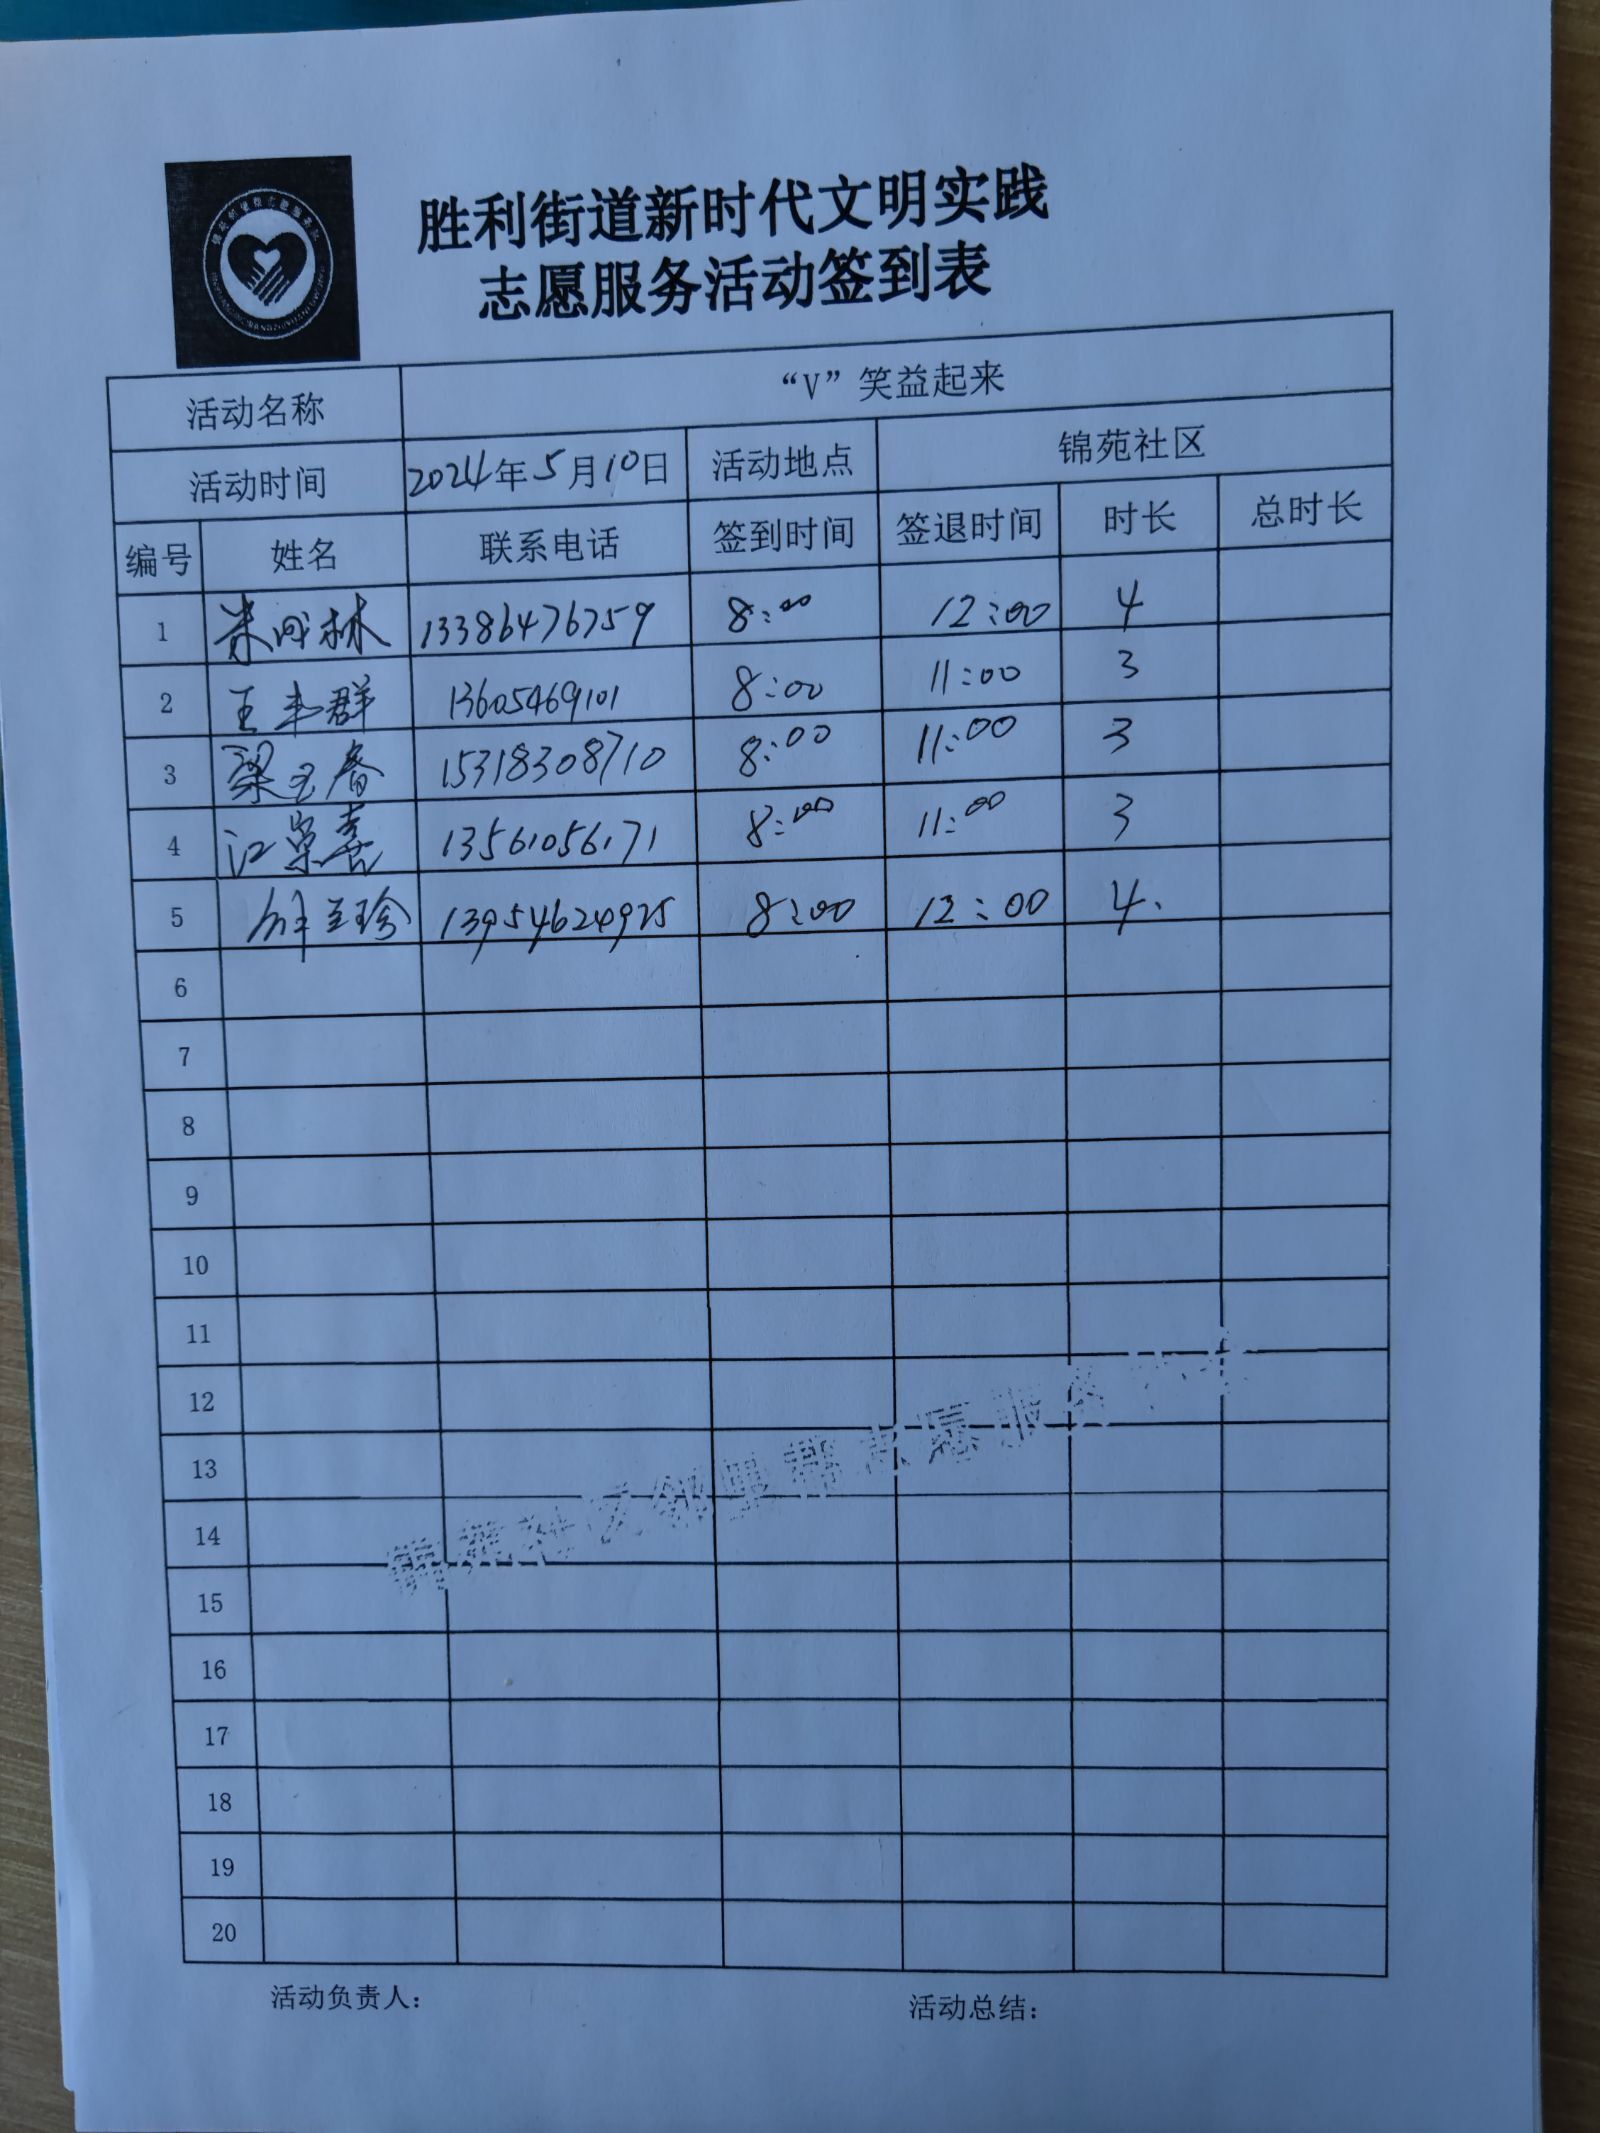 胜利街道新时代文明实践
志愿服务活动签到表
活动名称 “V”笑益起来
活动时间 2024年5月10日 活动地点 锦苑社区
编号 姓名 联系电话 签到时间 签退时间 时长 总时长
1 13386476759 8:00 12:00 4
2 王丰群 13605469101 8:00 11:00 3
3 梁玉春 15318308710 8:00 11:00 3
4 江荣喜 13561056171 8:00 11:00 3
5 薛兰珍 13954624925 8:00 12:00 4.
6
7
8
9
10
11
12
13
14
15
16
17
18
19
20
社区邻里帮志愿服务
活动负责人: 活动总结: